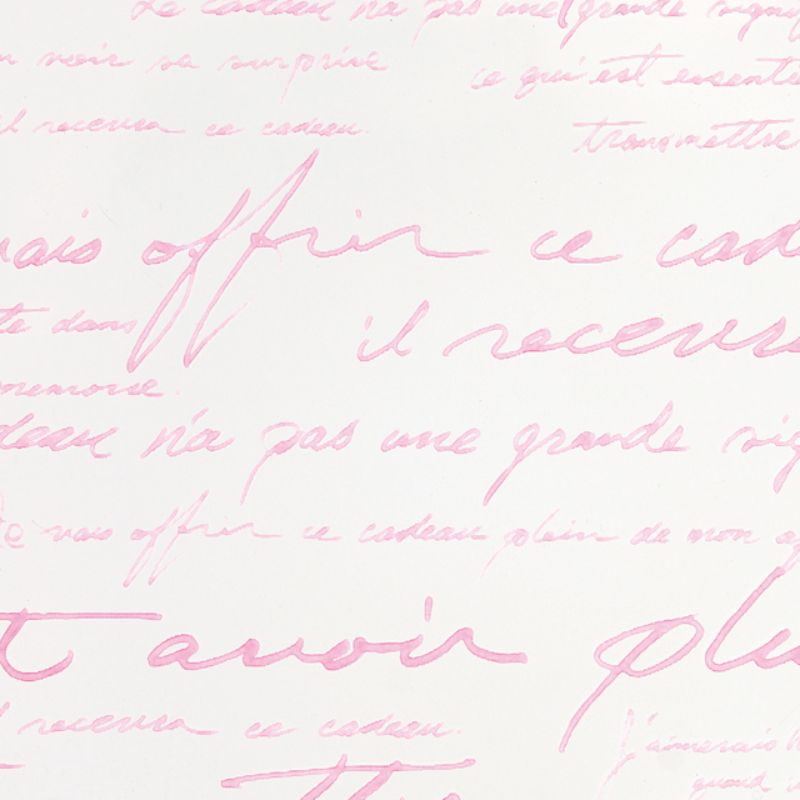 Le cadeau n'a pas une grande signi
voir sa surprise
ce qui est essenti
il recevra ce cadeau.
transmettre
vais offrir ce cad
te dans
il recevra
memoire.
deau n'a pas une grande sig
Je vais offrir ce cadeau plein de mon a
t avoir plu
il recevra ce cadeau.
J'aimerais
quand